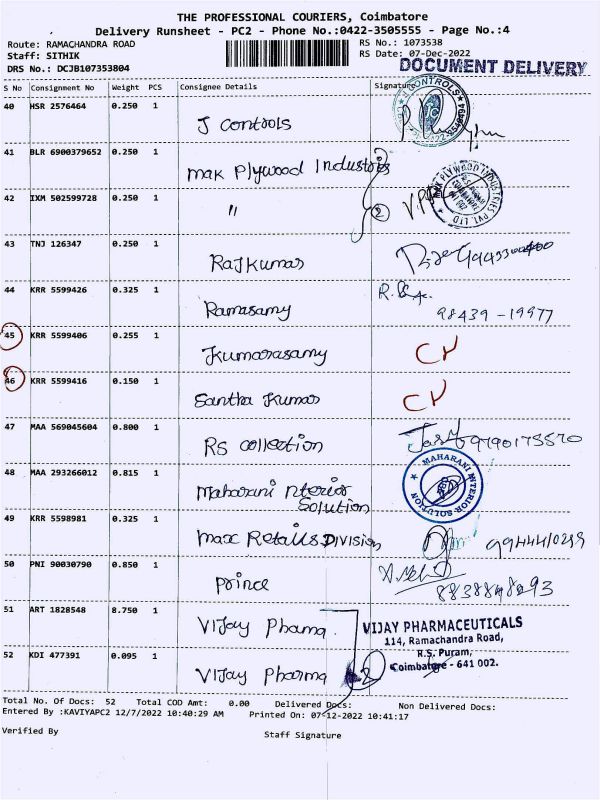 THE PROFESSIONAL COURIERS, Coimbatore
Delivery Runsheet - PC2 - Phone No.:0422-3505555 - Page No.:4
Route: RAMACHANDRA ROAD
RS No.: 1073538
Staff: SITHIK
RS Date: 07-Dec-2022
DRS No.: DCJB107353804
DOCUMENT DELIVERY
S No Consignment No Weight PCS Consignee Details Signature
40 HSR 2576464 0.250 1
J Controls
41 BLR 6900379652 0.250 1
mak Plywood Industries
42 IXM 502599728 0.250 1
"
2
MAK PLYWOOD INDUSTRIES PVT. LTD
43 TNJ 126347 0.250 1
Rajkumar
44 KRR 5599426 0.325 1
Ramasamy
98439-19977
45 KRR 5599406 0.255 1
Kumarasamy
46 KRR 5599416 0.150 1
Santha Kumar
47 MAA 569045604 0.800 1
RS collection
48 MAA 293266012 0.815 1
Maharani nterior
Solution
MAHARANI INTERIOR SOLUTION
49 KRR 5598981 0.325 1
max Retails DIVISION
50 PNI 90030790 0.850 1
prince
51 ART 1828548 8.750 1
Vijay Phama
VIJAY PHARMACEUTICALS
114, Ramachandra Road,
R.S. Puram,
Coimbatore - 641 002.
52 KDI 477391 0.095 1
Vijay Pharma
2
Total No. Of Docs: 52 Total COD Amt: 0.00 Delivered Docs: Non Delivered Docs:
Entered By :KAVIYAPC2 12/7/2022 10:40:29 AM Printed On: 07-12-2022 10:41:17
Verified By
Staff Signature